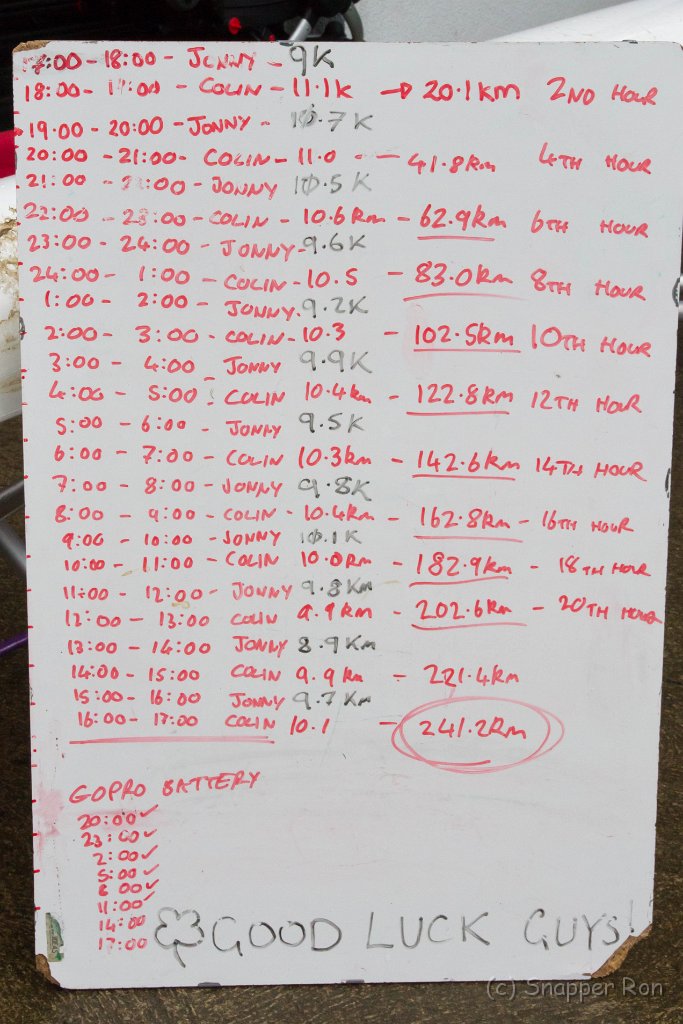 17:00 - 18:00 - JONNY - 9K
18:00 - 19:00 - COLIN - 11.1k → 20.1km 2ND HOUR
19.00 - 20:00 - JONNY - 10.7K
20:00 - 21:00 - COLIN - 11.0 - 41.8km 4TH HOUR
21:00 - 22:00 - JONNY 10.5K
22:00 - 23:00 - COLIN - 10.6km - 62.9km 6TH HOUR
23:00 - 24:00 - JONNY - 9.6K
24:00 - 1:00 - COLIN - 10.5 - 83.0km 8TH HOUR
1:00 - 2:00 - JONNY - 9.2K
2:00 - 3:00 - COLIN - 10.3 - 102.5km 10TH HOUR
3:00 - 4:00 - JONNY 9.9K
4:00 - 5:00 : COLIN 10.4km - 122.8km 12TH HOUR
5:00 - 6:00 - JONNY 9.5K
6:00 - 7:00 - COLIN 10.3km - 142.6km 14TH HOUR
7:00 - 8:00 - JONNY 9.8K
8:00 - 9:00 - COLIN - 10.4km - 162.8km - 16TH HOUR
9:00 - 10:00 - JONNY 10.1K
10:00 - 11:00 - COLIN 10.0km - 182.9km - 18TH HOUR
11:00 - 12:00 - JONNY 9.8Km
12:00 - 13:00 COLIN 9.9km - 202.6km - 20TH HOUR
13:00 - 14:00 JONNY 8.9Km
14:00 - 15:00 COLIN 9.9km - 221.4km
15:00 - 16:00 JONNY 9.7Km
16:00 - 17:00 COLIN 10.1 - 241.2km
GOPRO BATTERY
20:00 ✓
23:00 ✓
2:00 ✓
5:00 ✓
8:00 ✓
11:00 ✓
14:00
17:00
GOOD LUCK GUYS!
(c) Snapper Ron